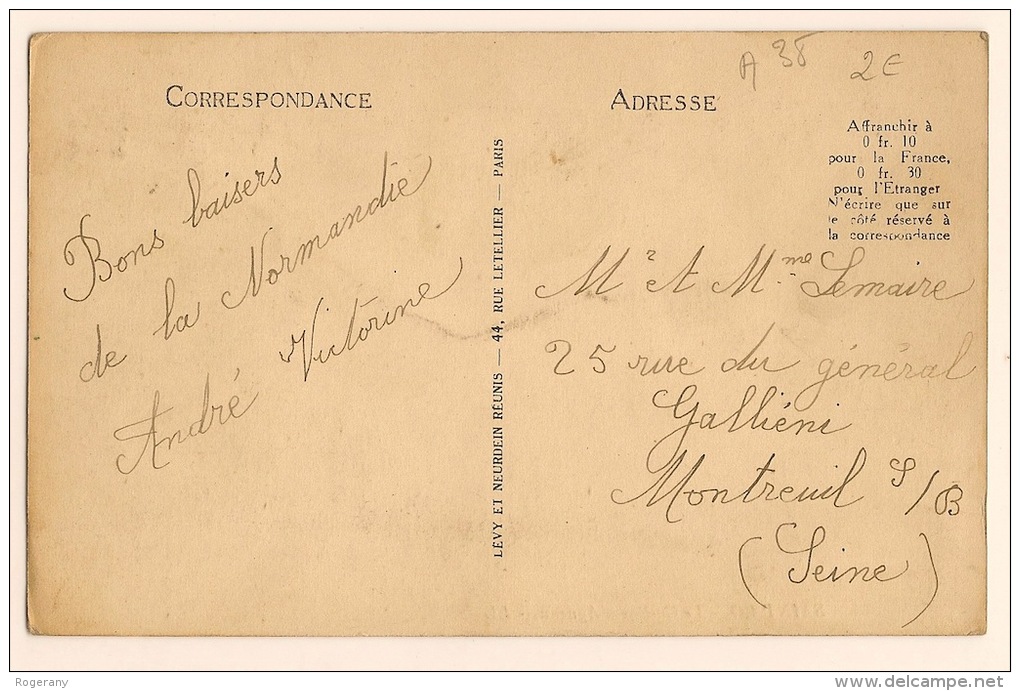 A 38
2E
CORRESPONDANCE
ADRESSE
Affranchir à
0 fr. 10
pour la France,
0 fr. 30
pour l'Etranger
N'écrire que sur
le côté réservé à
la correspondance
Bons baisers
de la Normandie
André Victorine
LÉVY ET NEURDEIN RÉUNIS — 44, RUE LETELLIER — PARIS
Mr et Mme Lemaire
25 rue du général
Galliéni
Montreuil S/B
(Seine)
Rogerany
delcampe.net